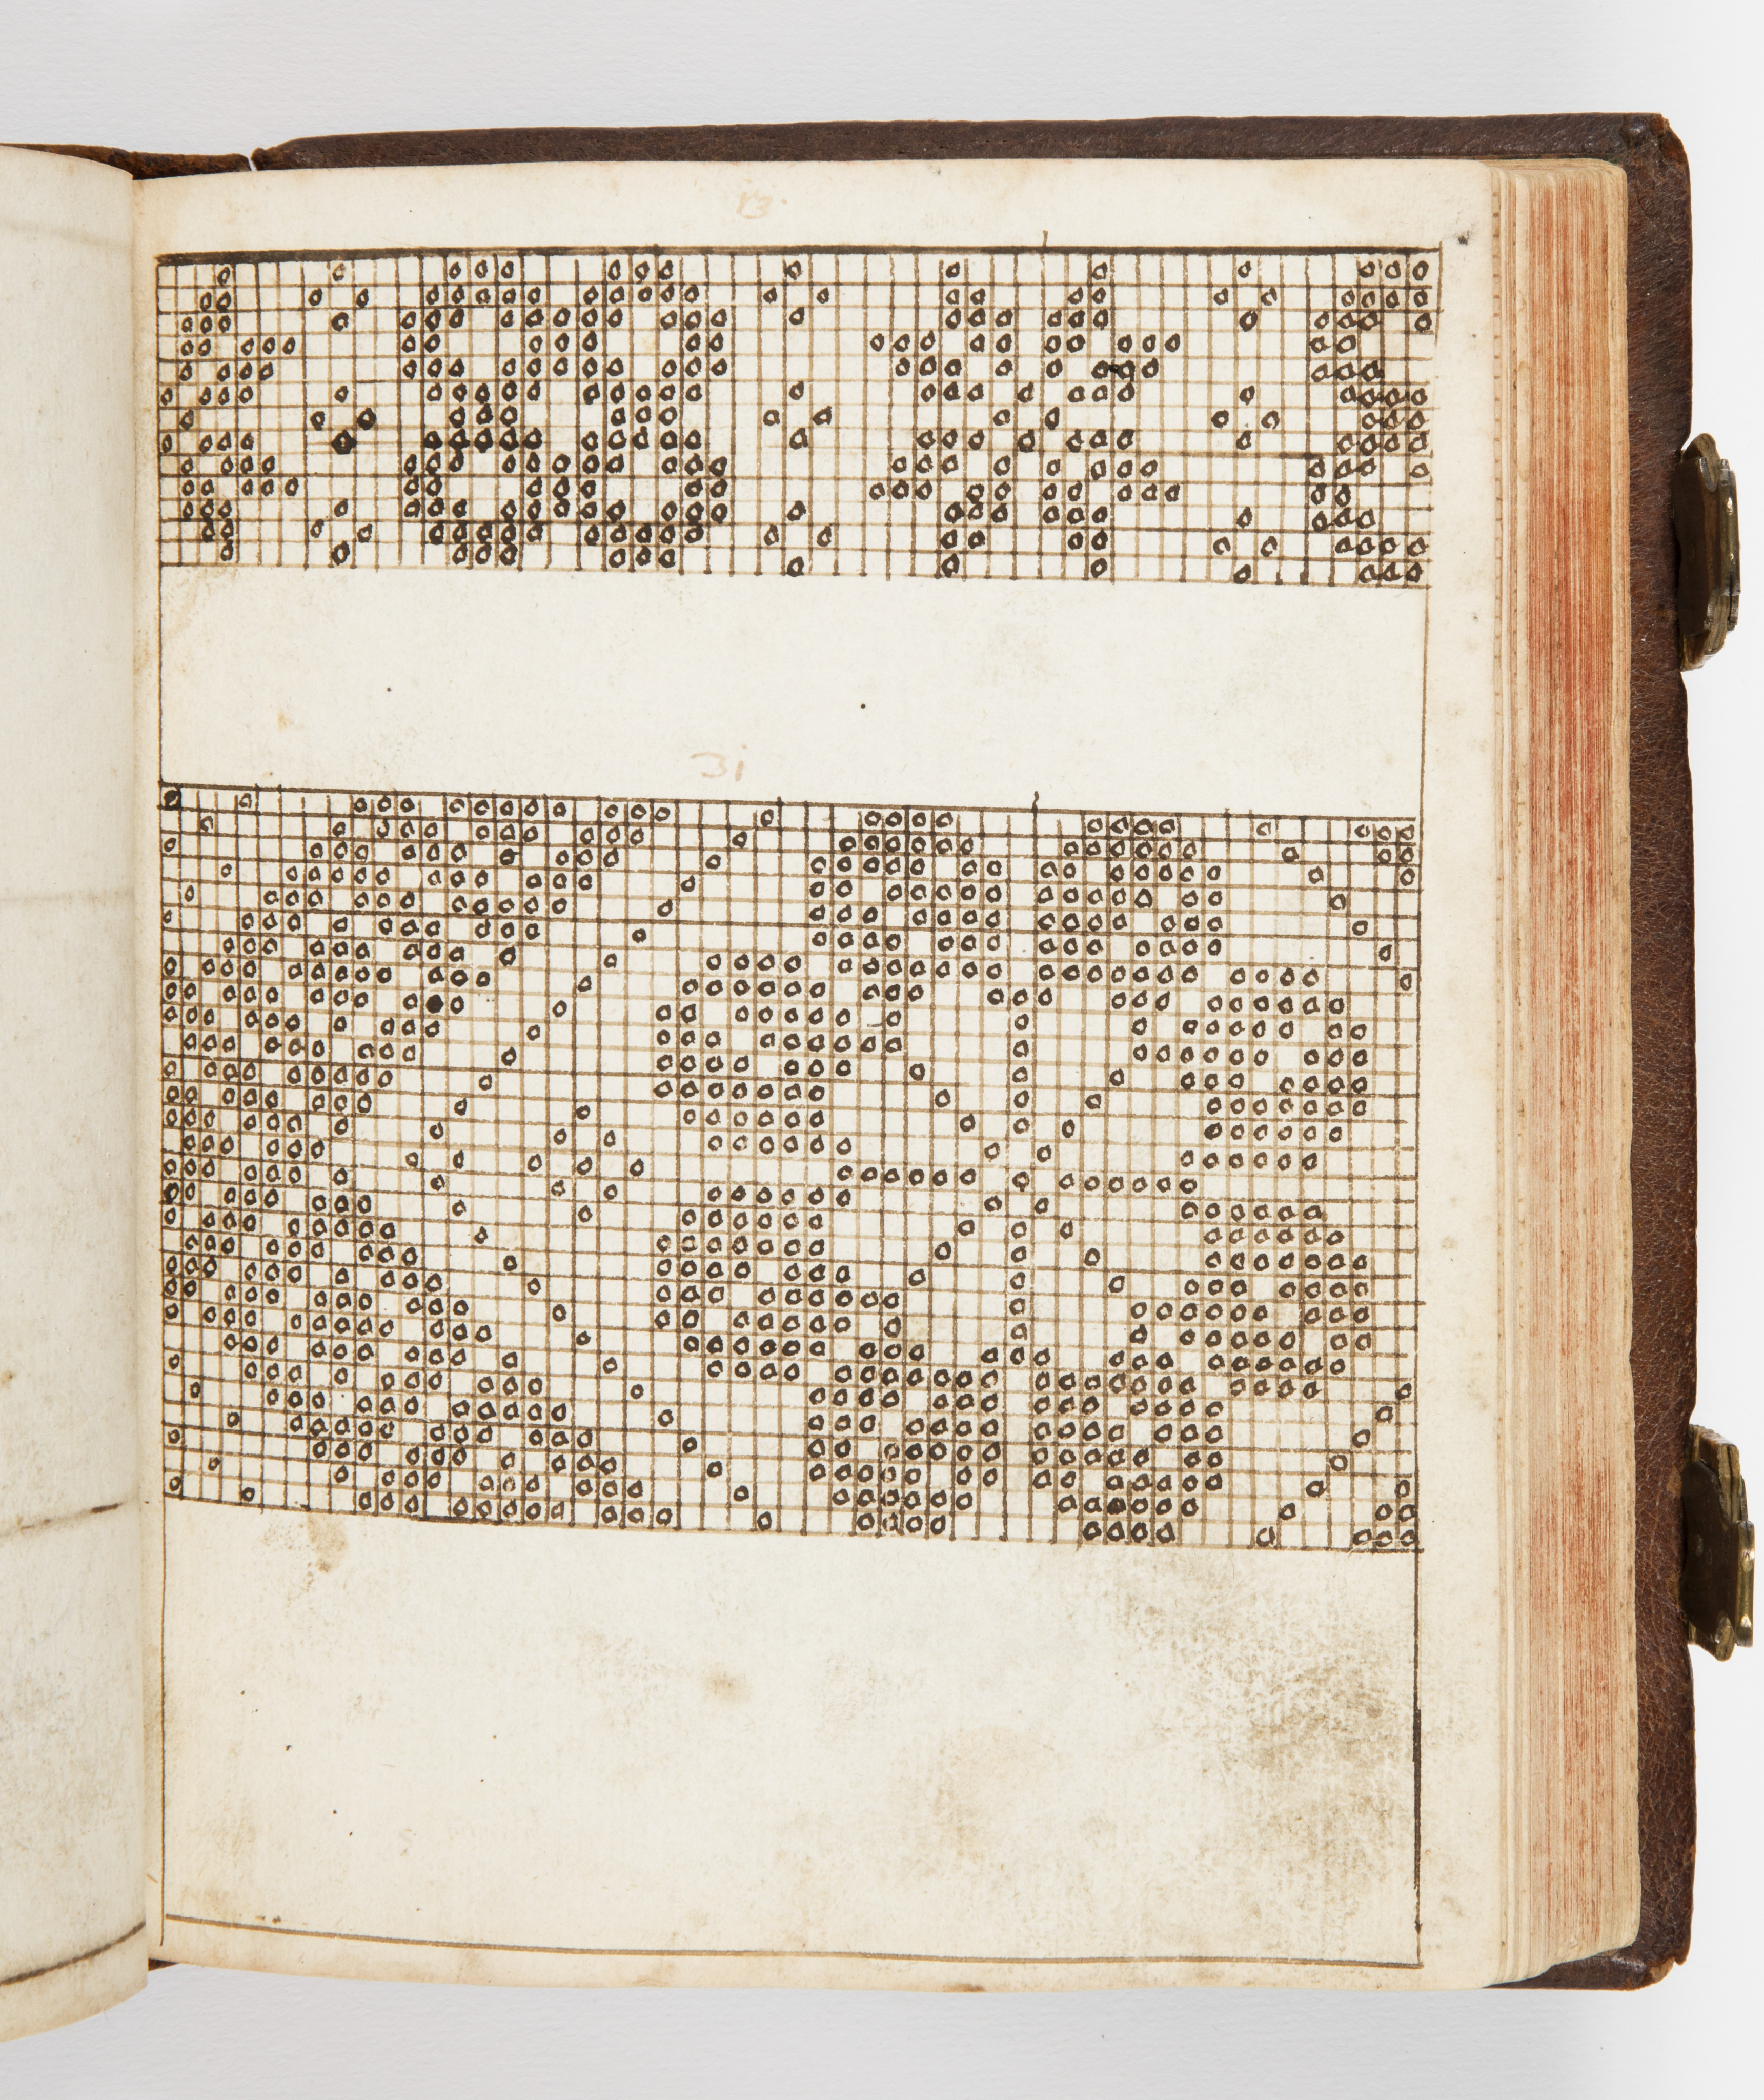 13
31